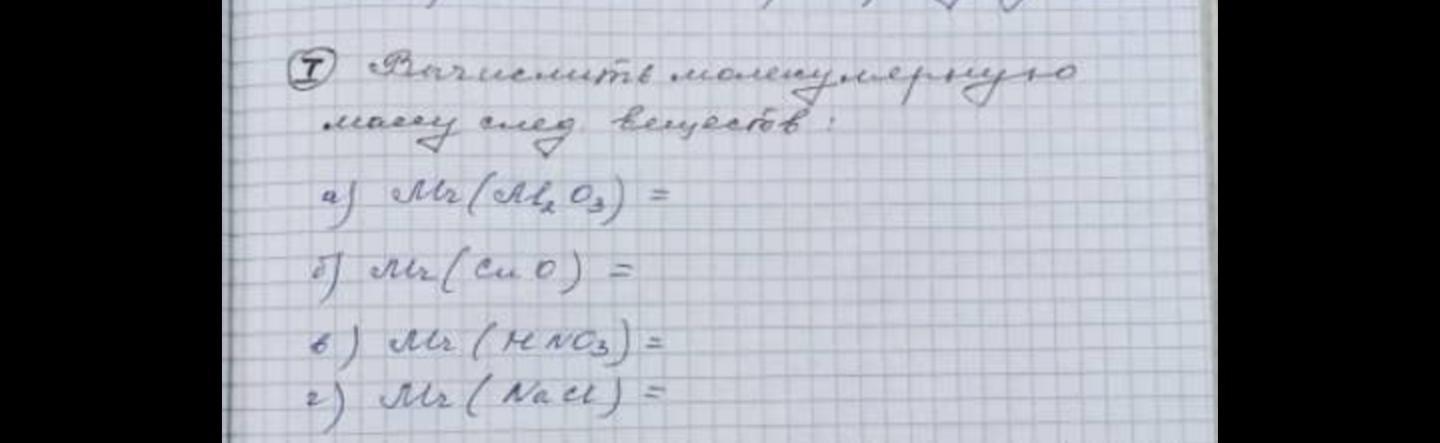 I Вычислить молекулярную
массу след. веществ:
а) Mr(Al₂O₃) =
б) Mr(CuO) =
в) Mr(HNO₃) =
г) Mr(NaCl) =